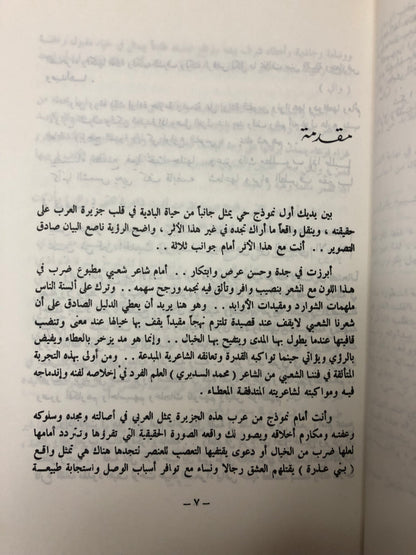 مقدمة
بين يديك أول نموذج حي يمثل جانباً من حياة البادية في قلب جزيرة العرب على
حقيقته ، وينقل واقعاً ما أراك تجده في غير هذا الأثر ، واضح الرؤية ناصع البيان صادق
التصوير . . أنت مع هذا الأثر أمام جوانب ثلاثة . .
أبرزت في جدة وحسن عرض وابتكار . . أمام شاعر شعبي مطبوع ضرب في
هذا اللون مع الشعر بنصيب وافر وتألق فيه نجمه ورجح سهمه . . وترك على ألسنة الناس
ملهمات الشوارد ومقيدات الأوابد . . وهو هنا يريد أن يعطي الدليل الصادق على أن
شعرنا الشعبي لايقف عند قصيدة تلتزم نهجاً مقيداً يقف بها خيالها عند معنى وتنضب
قافيتها عندما يطول بها المدى ويتيح بها الخيال . . وإنما هو مد يزخر بالعطاء ويفيض
بالرؤي ويؤاتي حينما تواكبه القدرة وتعانقه الشاعرية المبدعة . . ومن أولى بهذه التجربة
المتألقة في فننا الشعبي من الشاعر ( محمد السديري ) العلم الفرد في إخلاصه لفنه وإندماجه
فيه ومواكبته لشاعريته المتدفقة المعطاء .
وأنت أمام نموذج من عرب هذه الجزيرة يمثل العربي في أصالته ومجده وسلوكه
وعفته ومكارم أخلاقه ويصور لك واقعه الصورة الحقيقية التي تقرؤها وتتردد أمامها
لعلها ضرب من الخيال أو دعوى يقتفيها التعصب للعنصر لتجدها هناك هي تمثل واقع
( بني عذرة ) يقتلهم العشق رجالا ونساء مع توافر أسباب الوصل واستجابة طبيعة
– ٧ –